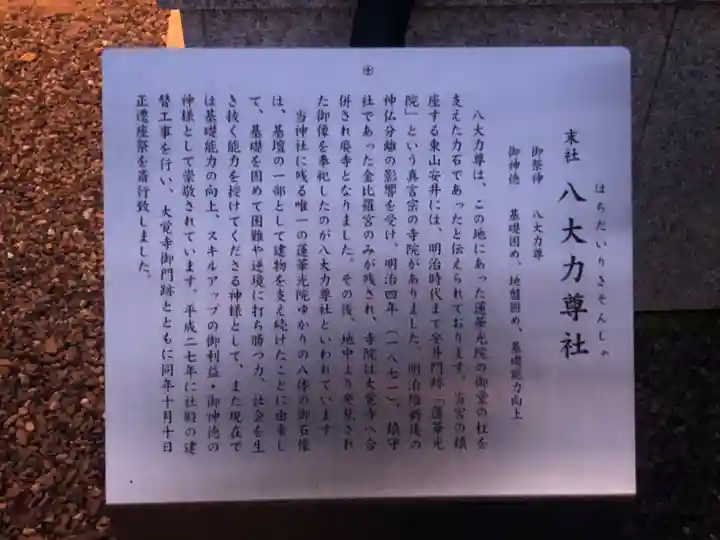 はちだいりきそんしゃ
末社 八大力尊社
御祭神 八大力尊
御神徳 基礎固め、地盤固め、基礎能力向上
八大力尊は、この地にあった蓮華光院の御堂の柱を
支えた力石であったと伝えられております。当宮の鎮
座する東山安井には、明治時代まで安井門跡「蓮華光
院」という真言宗の寺院がありました。明治維新後の
神仏分離の影響を受け、明治四年(一八七一)、鎮守
社であった金比羅宮のみが残され、寺院は大覚寺へ合
併され廃寺となりました。その後、地中より発見され
た御像を奉祀したのが八大力尊社といわれています
当神社に残る唯一の蓮華光院ゆかりの八体の御石像
は、基壇の一部として建物を支え続けたことに由来し
て、基礎を固めて困難や逆境に打ち勝つ力、社会を生
き抜く能力を授けてくださる神様として、また現在で
は基礎能力の向上、スキルアップの御利益・御神徳の
神様として崇敬されています。平成二七年に社殿の建
替工事を行い、大覚寺御門跡とともに同年十月十日
正遷座祭を斎行致しました。